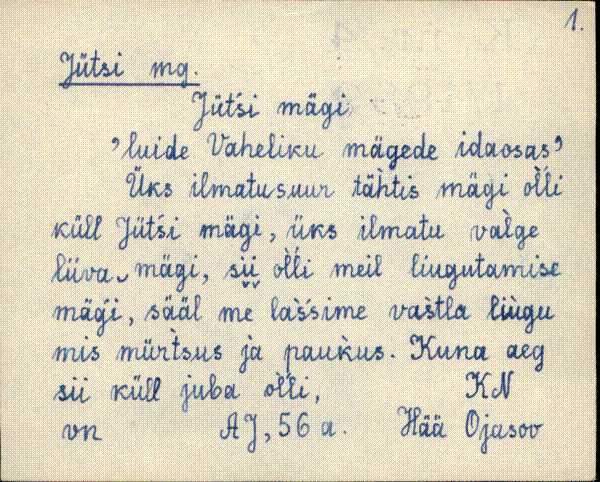 1.
Jütsi mg.
Jüt́si mägi
'luide Vaheliku mägede idaosas'
Üks ilmatusuur täh̀tis mägi ol̀li
küll Jüt́si mägi, üks ilmatu val̀ge
liiva mägi, sii ol̀li meil liugutamise
mäǵi, sääl me laśsime vaśtla liùgu
mis mür̀tsus ja paukùs. Kuna aeg
sii küll juba ol̀li, KN
vn AJ, 56 a. Hää Ojasoo